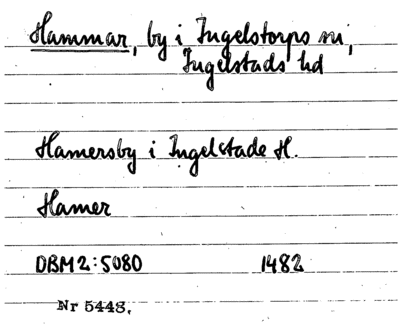 Hammar, by i Ingelstorps sn,
Ingelstads hd
Hamersby i Ingelstade H.
Hamer
DBM2:5080 1482
Nr 5448.